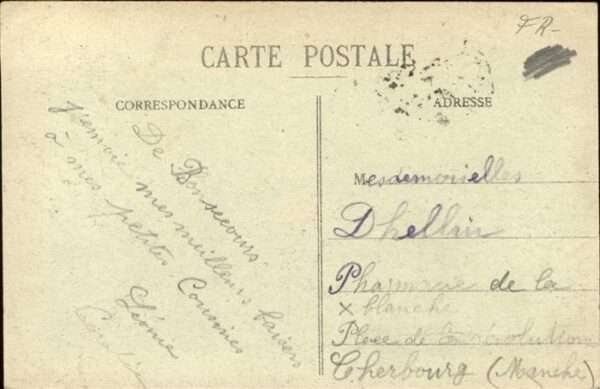 FR-
CARTE POSTALE
CORRESPONDANCE
ADRESSE
De Bonsecours
j'envoie mes meilleurs baisers
à mes petites Cousines
Léonie
Mesdemoiselles
Dhellin
Pharmacie de la
x blanche
Place de la Révolution
Cherbourg (Manche)